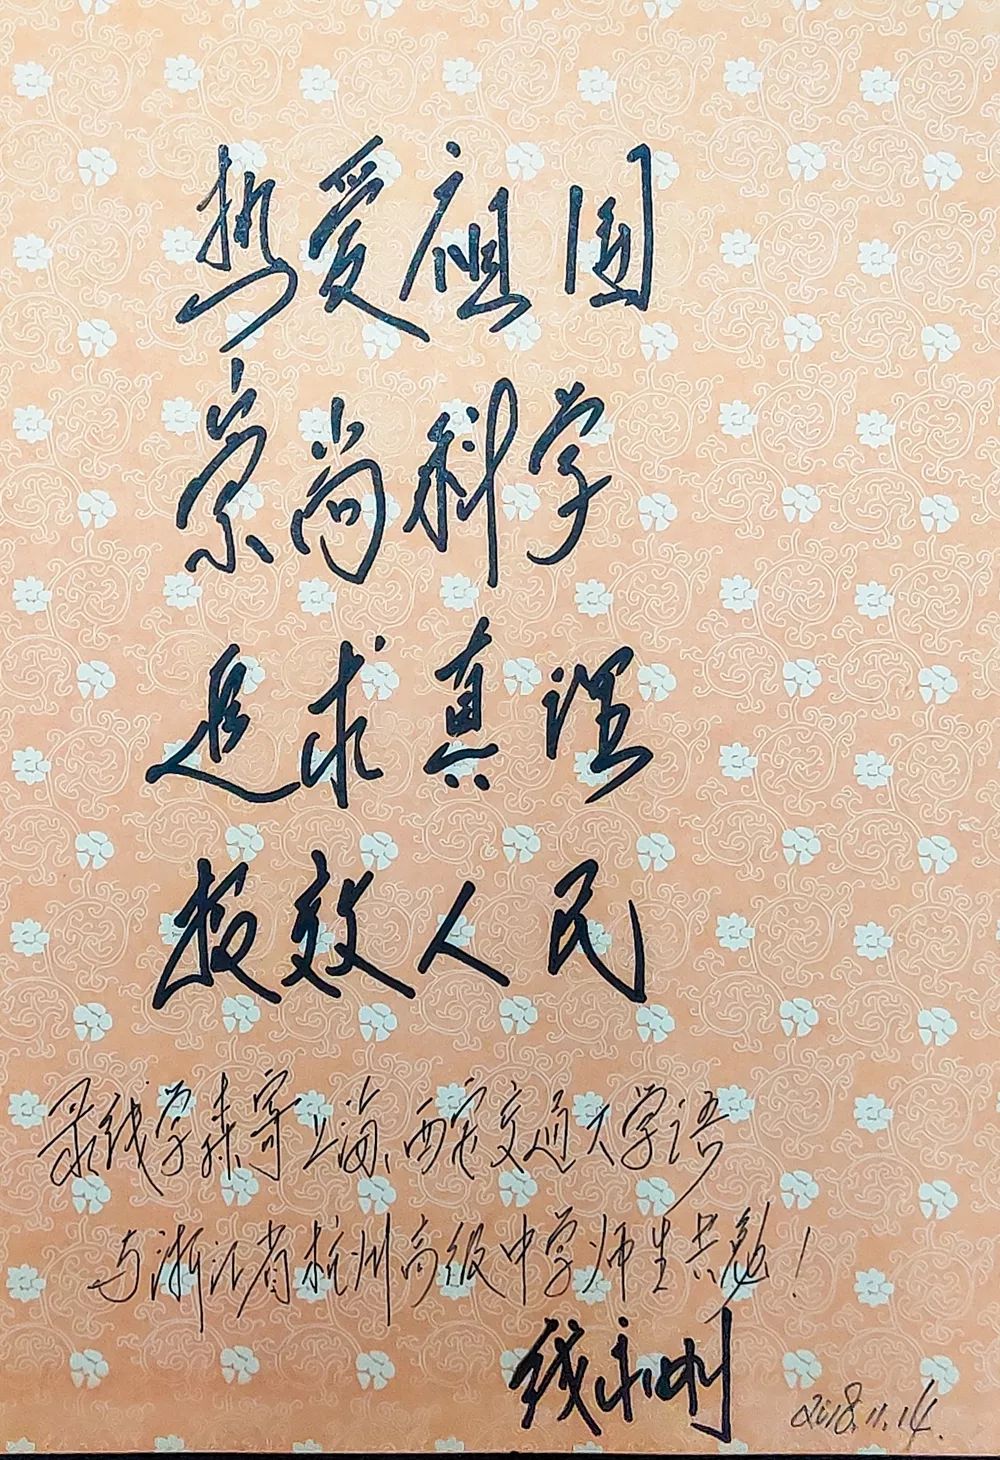 热爱祖国
崇尚科学
追求真理
报效人民
录钱学森寄上海、西安交通大学语
与浙江省杭州高级中学师生共勉！
钱永刚
2018.11.14.